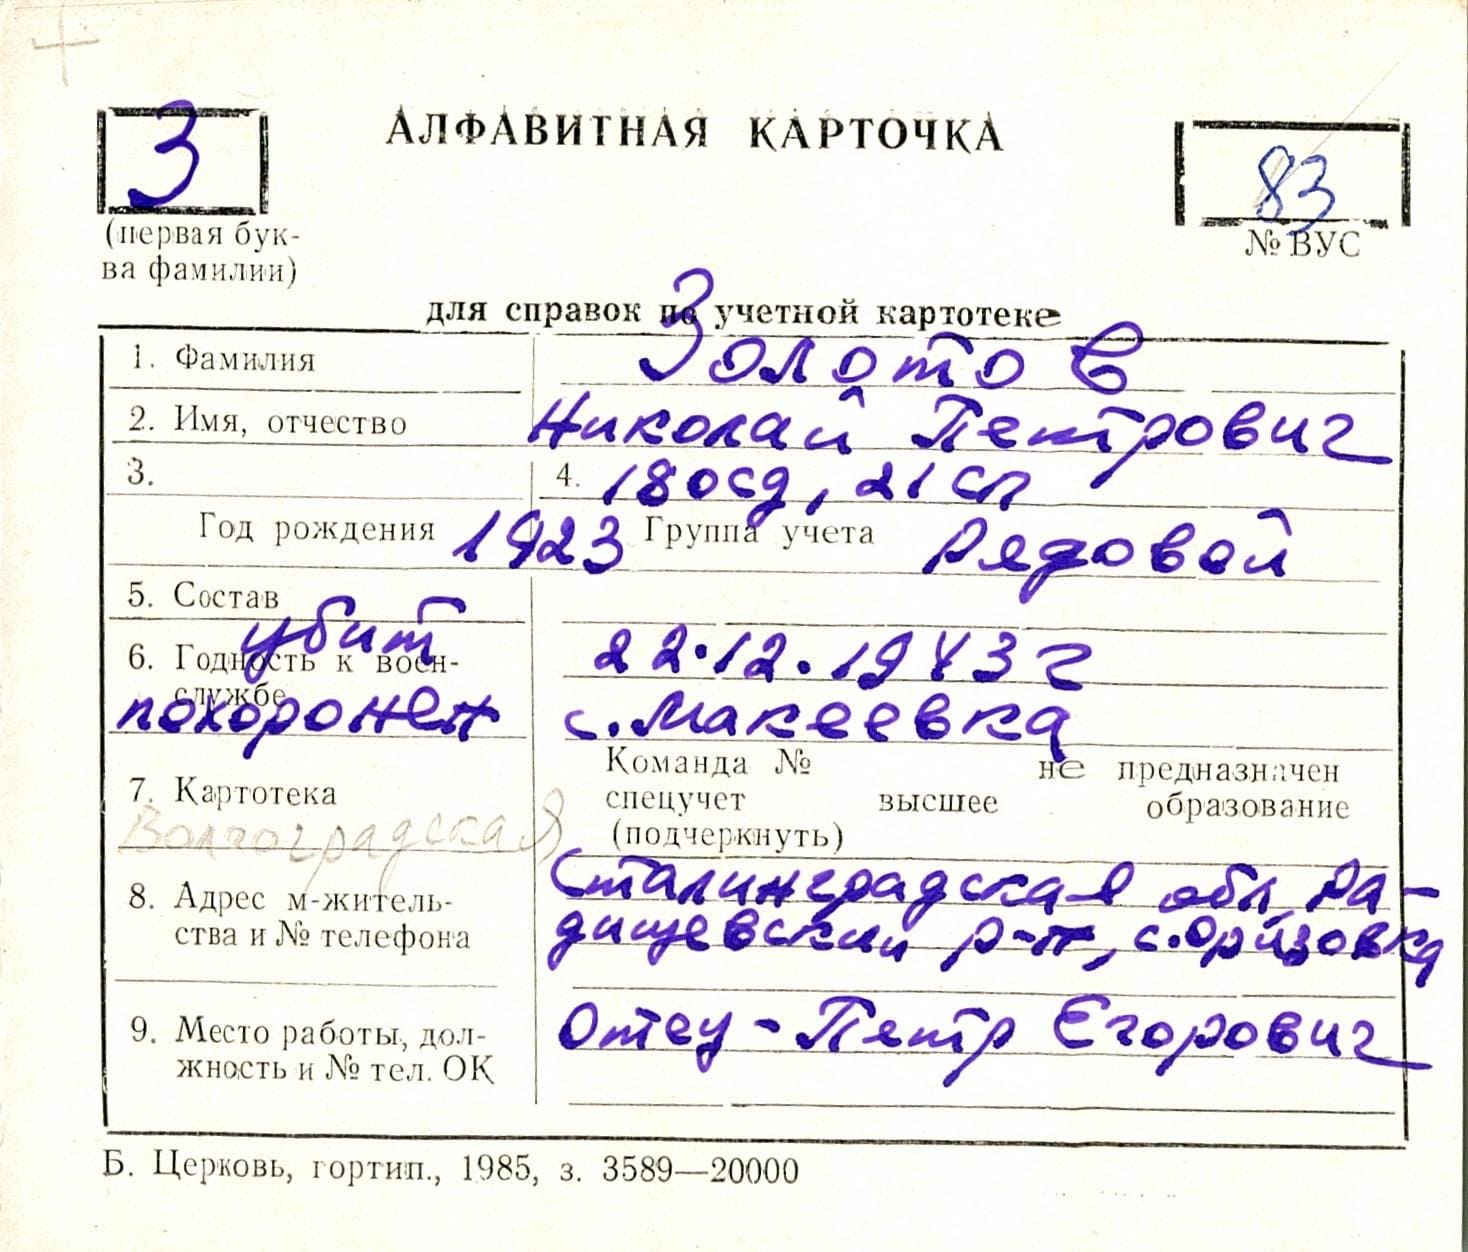 З
АЛФАВИТНАЯ КАРТОЧКА
83
(первая бук-
ва фамилии)
№ ВУС
для справок по учетной картотеке
1. Фамилия Золотов
2. Имя, отчество Николай Петрович
3. 4. 180сд, 21 сп
Год рождения 1923 Группа учета Рядовой
5. Состав
убит 22.12.1943 г
6. Годность к воен-
службе
похоронен с. Макеевка
Команда № не предназначен
7. Картотека спецучет высшее образование
(подчеркнуть)
Волгоградская
Сталинградская обл, Ра-
8. Адрес м-житель-
ства и № телефона дищевский р-н, с.
9. Место работы, дол- Отец - Петр Егорович
жность и № тел. ОК
Б. Церковь, гортип., 1985, з. 3589—20000